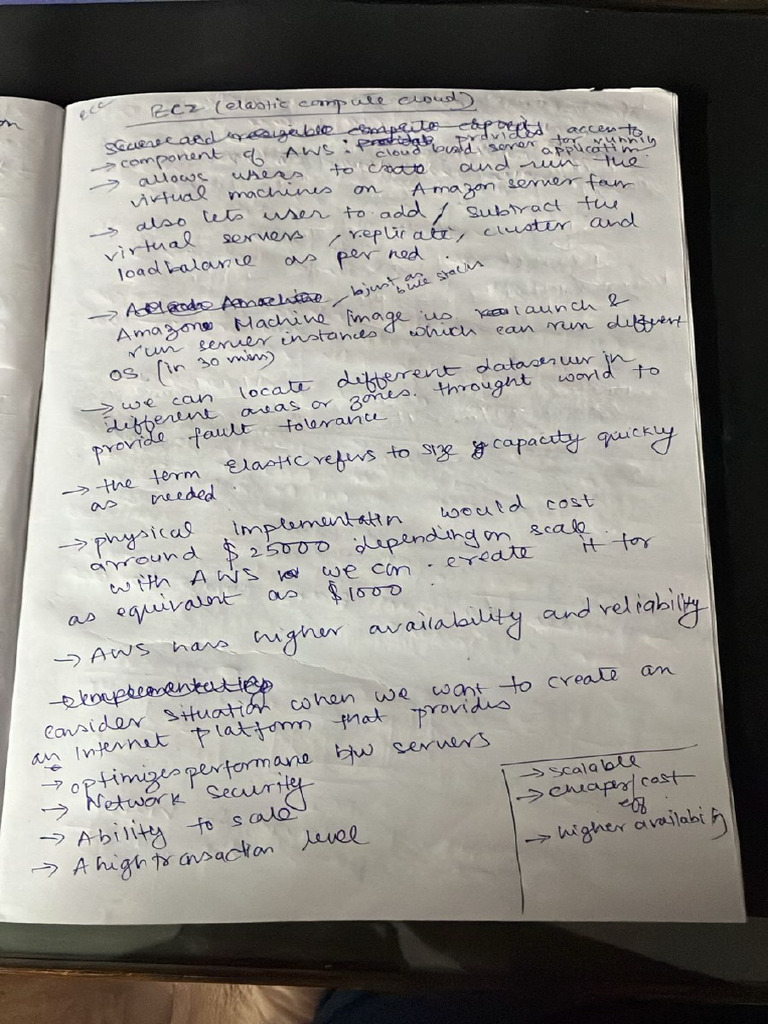 on
ecc
EC2 (elastic compute cloud)
secure and resizable compute capacity
→ component of AWS : provides access to
cloud based server for running
application
→ allows users to create and run the
virtual machines on Amazon server farm
→ also lets user to add / subtract the
virtual servers, replicate, cluster and
loadbalance as per ned.
→ Amazon Machine Image is launch &
just as blue stacks
run server instances which can run different
OS. (in 30 mins)
→ we can locate different dataserver in
different areas or zones. throught world to
provide fault tolerance
→ the term Elastic refers to size capacity quickly
as needed.
→ physical implementatin would cost
arround $25000 depending on scale.
with AWS we can create it for
as equivalent as $1000.
→ AWS has higher availability and reliability
consider situation when we want to create an
an Internet platform that provides
→ optimizes performane b/w servers
→ Network Security
→ Ability to scale
→ A high transaction level
→ scalable
→ cheaper/cost
eff
→ higher availability